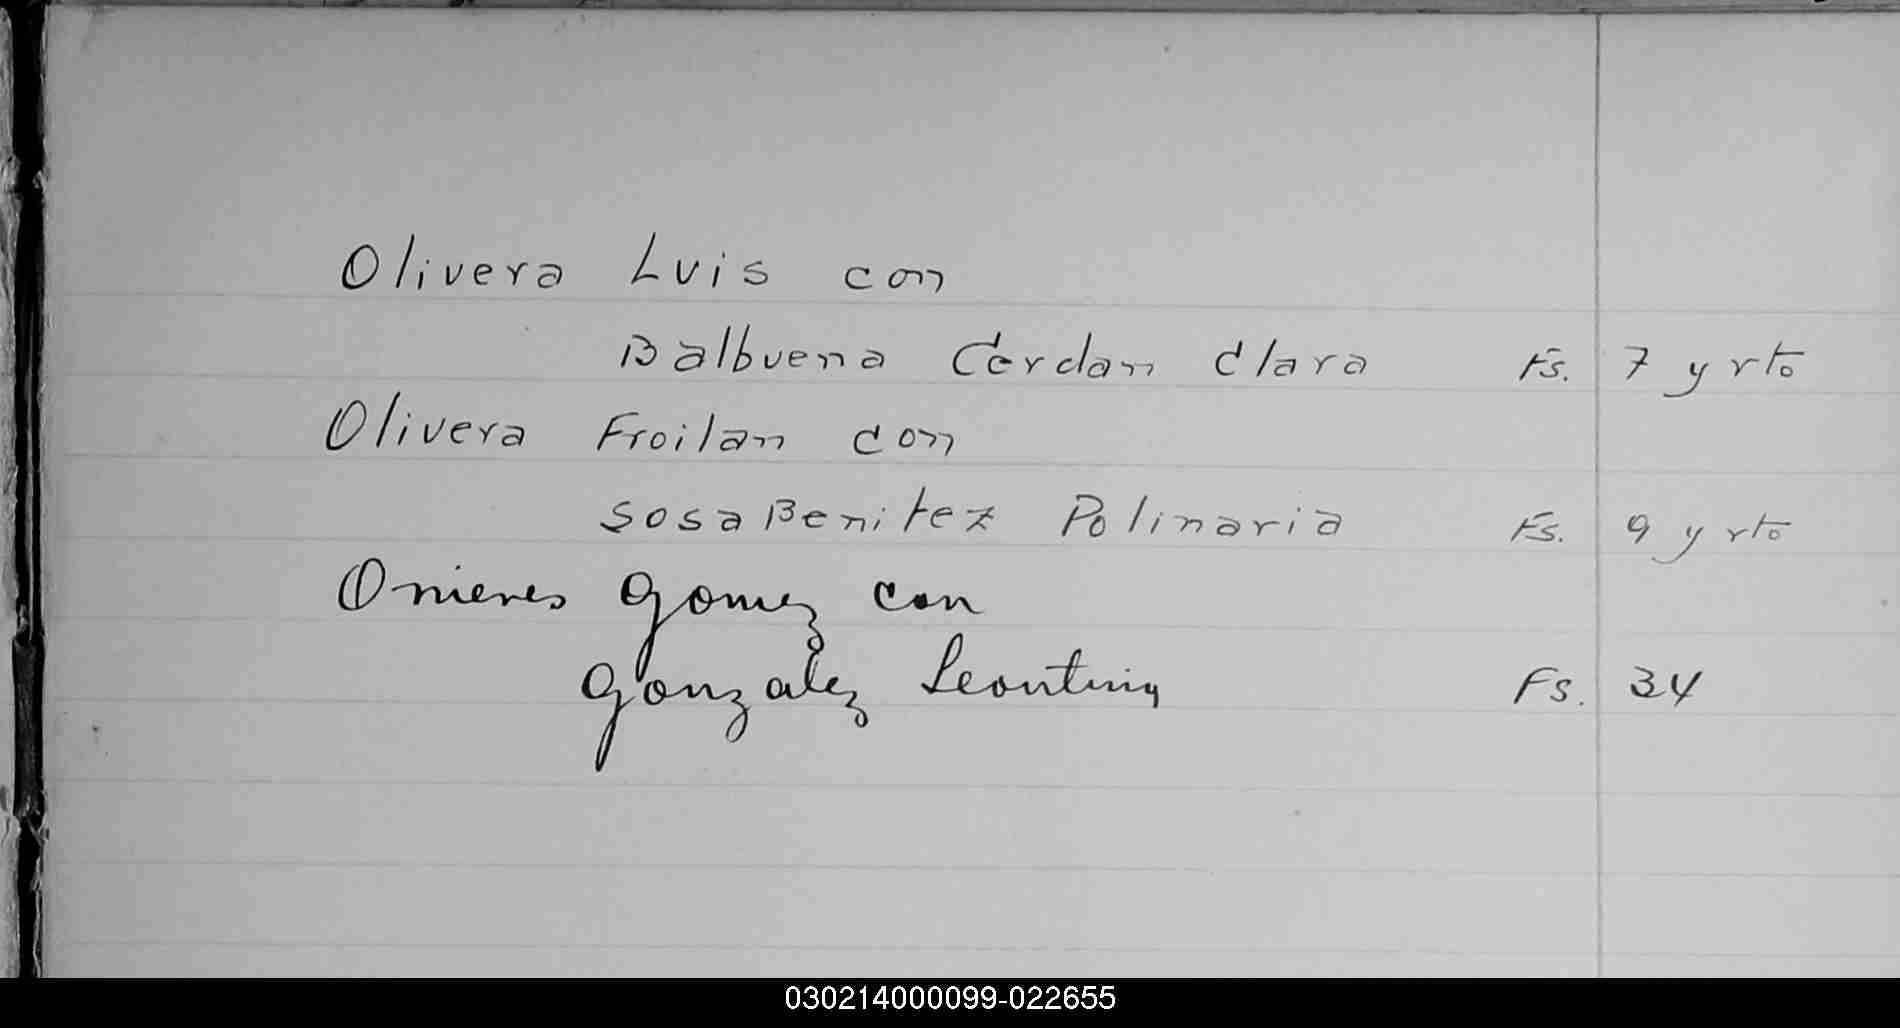 Olivera Luis con
Balbuena Cerdan Clara Fs. 7 y vto
Olivera Froilan con
Sosa Benitez Polinaria Fs. 9 y vto
Onieves Gomez con
Gonzalez Leontina Fs. 34
030214000099-022655